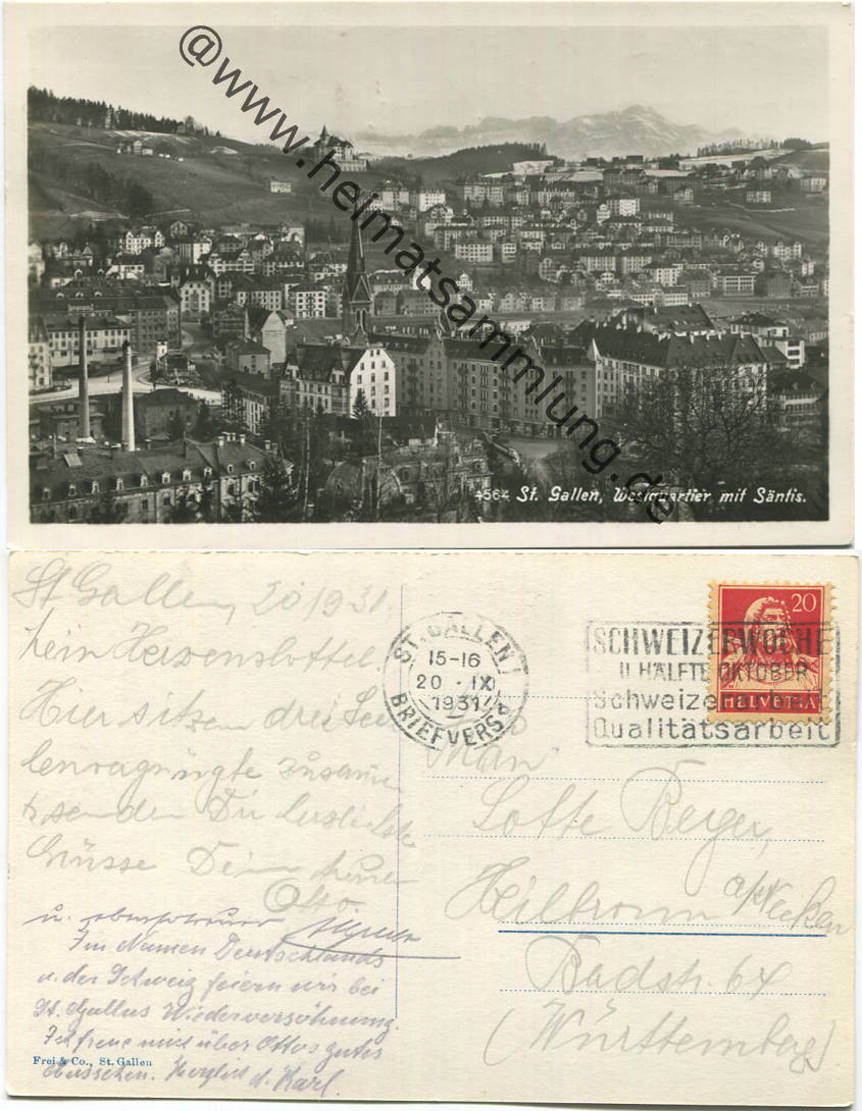 @www.heimatsammlung.de
4564 St. Gallen, Westquartier mit Säntis.
St Gallen, 20/9 31.
Mein Herzenslottel.
Hier sitzen drei
zusammen
& senden Dir herzlichste
Grüsse Dein treuer
Otto
u. ebenso treuer
Im Namen Deutschlands
u. der Schweiz feiern wir bei
St. Gallus Wiederversöhnung.
Ich freue mich über Ottos gutes
Aussehen. Herzlich d. Karl.
Frei & Co., St. Gallen
ST. GALLEN 1
15-16
20 · IX
1931
BRIEFVERSD
SCHWEIZERWOCHE
II. HÄLFTE OKTOBER
Schweizerarbeit
Qualitätsarbeit
20
HELVETIA
Lotte Berger,
Heilbronn a/Necken
Badstr. 64
(Württemberg)